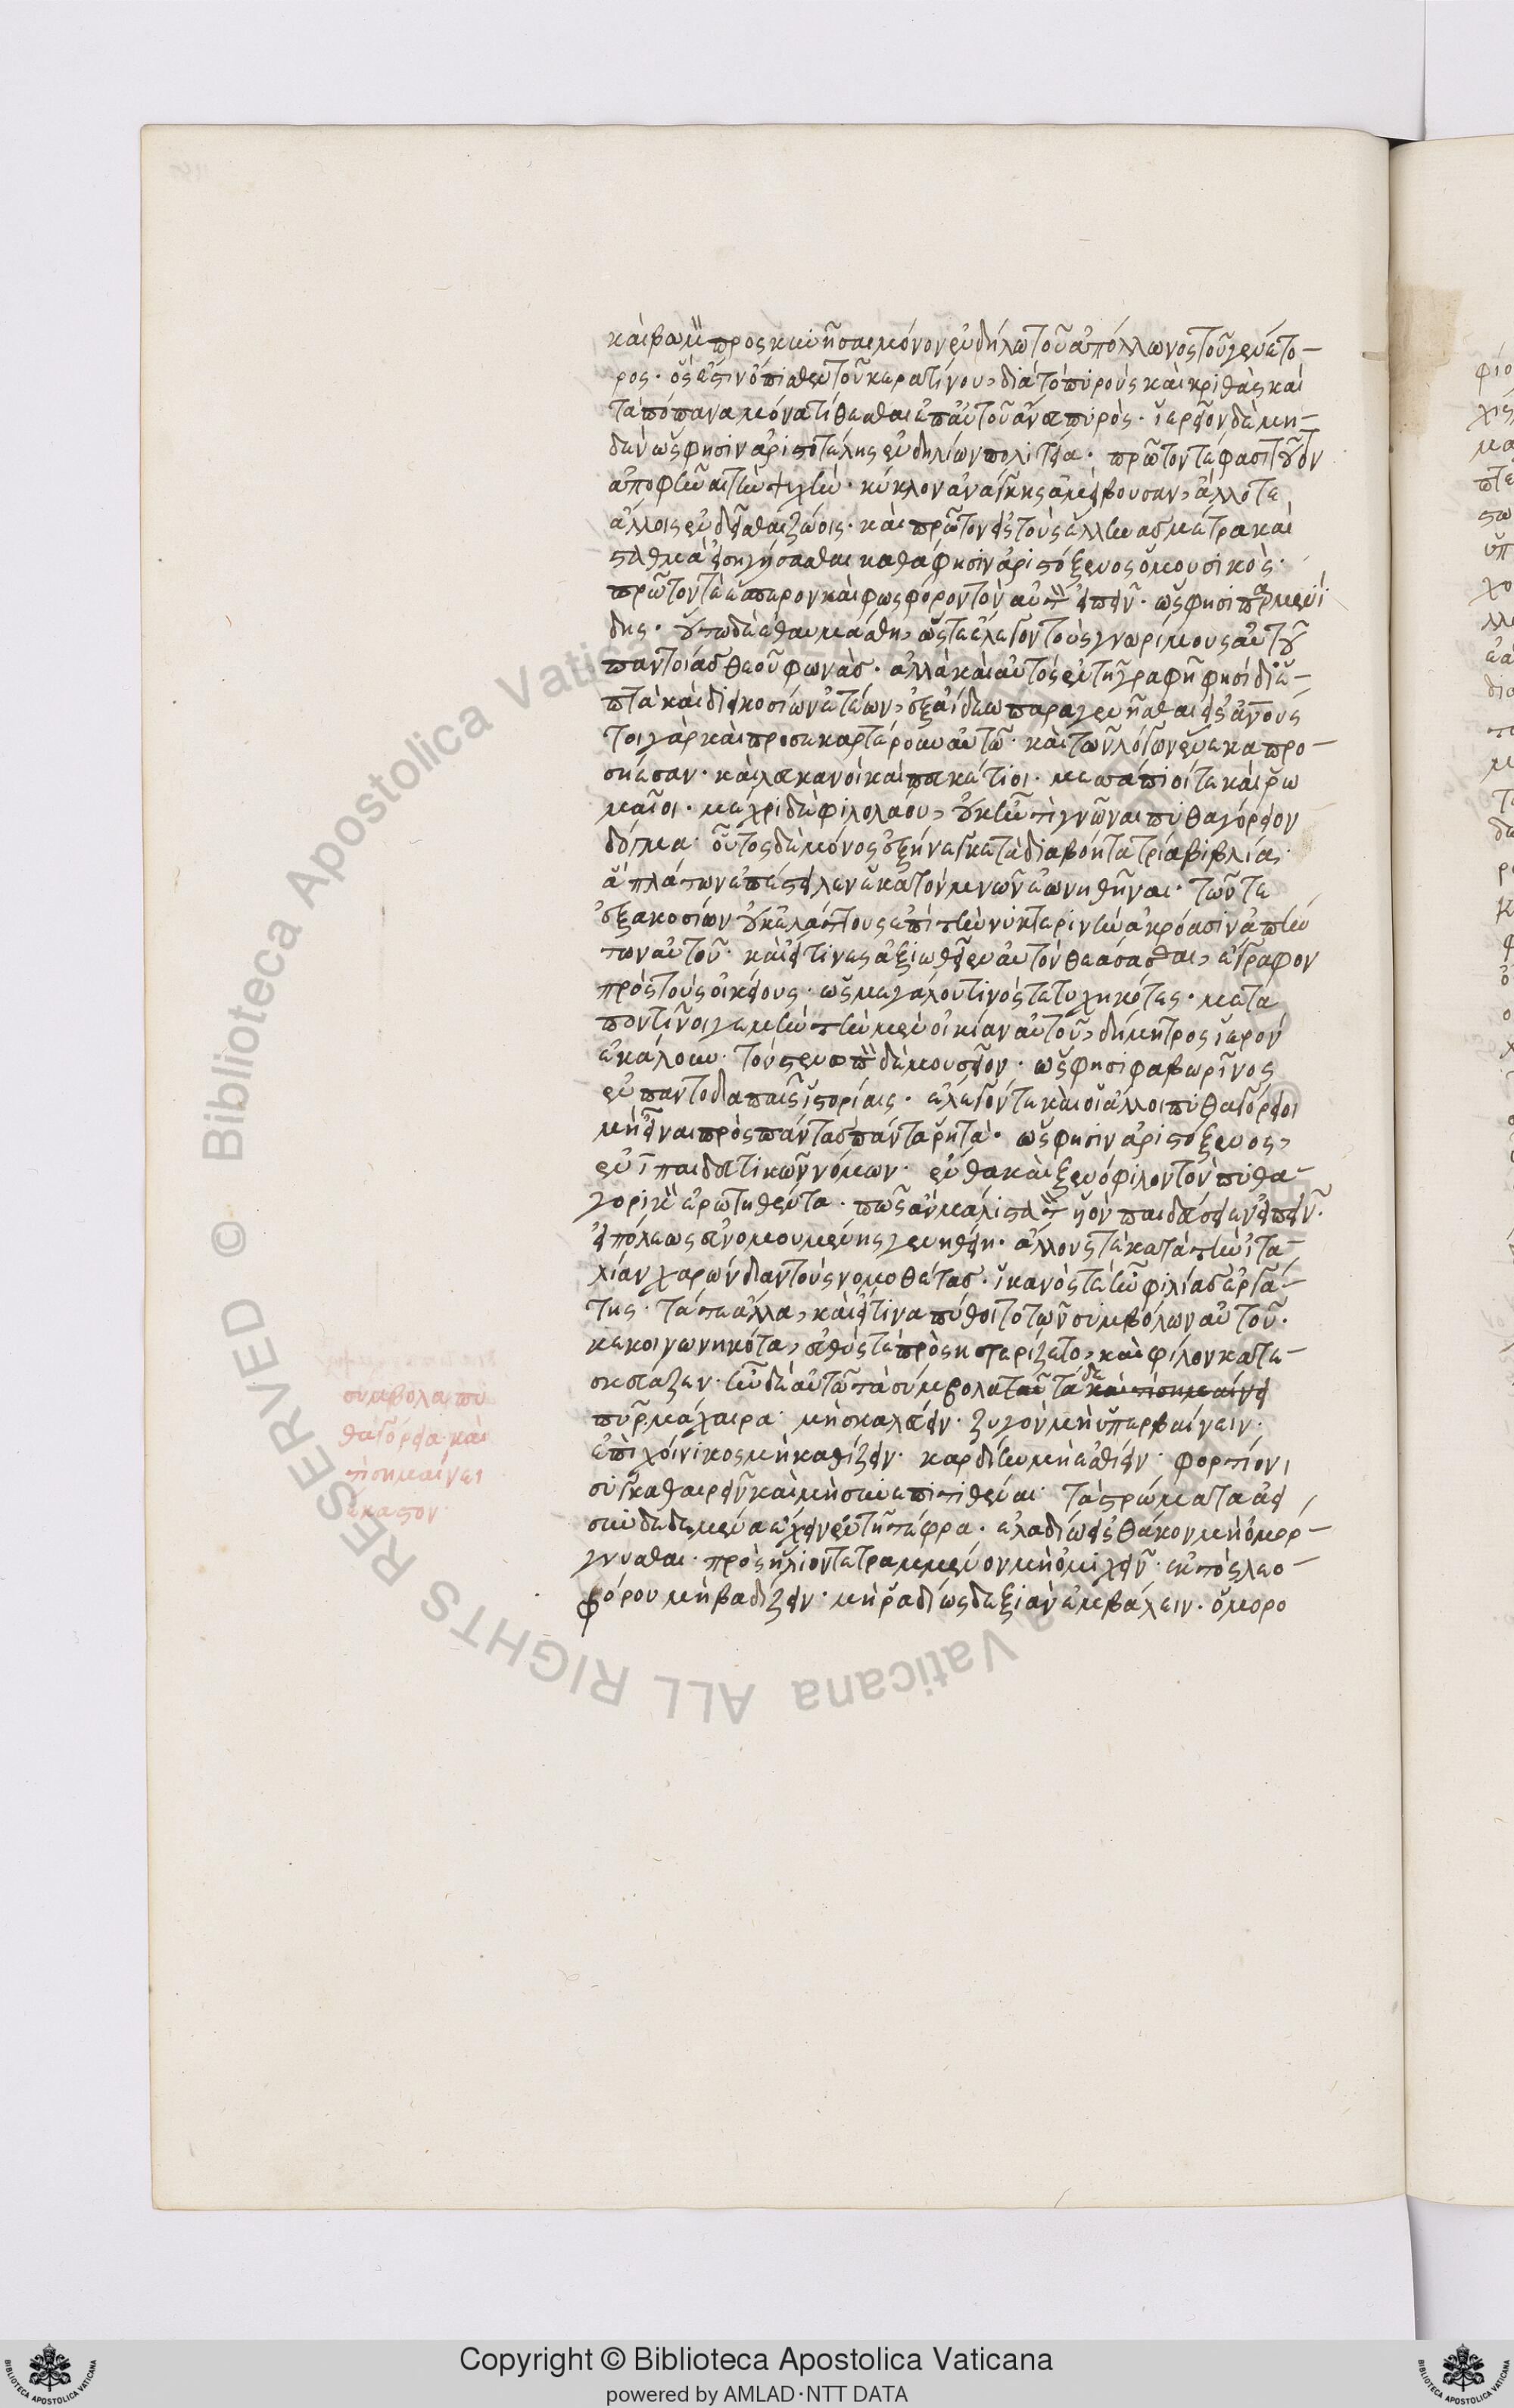 καὶ βωμὸν προσκυνῆσαι μόνον ἐν δήλω τοῦ ἀπόλλωνος τοῦ γενέτο-
ρος. ὅς ἐστιν ὄπισθεν τοῦ κερατίνου, διὰ τὸ πυροὺς καὶ κριθὰς καὶ
τὰ πόπανα μόνα τίθεσθαι ἐπ αὐτοῦ ἄνευ πυρὸς. ἱερεῖον δὲ μη-
δέν ὥς φησιν ἀριστοτέλης ἐν δηλίων πολιτεία. πρῶτόν τέ φασι τοῦτον
ἀποφῆναι τὴν ψυχὴν. κύκλον ἀνάγκης ἀμείβουσαν, ἄλλοτε
ἄλλοις ἐνδεῖσθαι ζώοις. καὶ πρῶτον εἰς τοὺς ἕλληνας μέτρα καὶ
σταθμὰ εἰσηγήσασθαι καθά φησιν ἀριστόξενος ὁ μουσικὸς.
πρῶτόν τε ἕσπερον καὶ φωσφόρον τὸν αὐτὸν εἰπεῖν. ὥς φησι παρμενί
δης. οὕτω δὲ ἐθαυμάσθη, ὥστε ἔλεγον τοὺς γνωρίμους αὐτοῦ
παντοίας θεοῦ φωνὰς. ἀλλὰ καὶ αὐτὸς ἐν τῆ γραφῆ φησὶ δι ἑ-
πτὰ καὶ διηκοσίων ἐτέων, ἐξ ἀίδεω παραγενῆσθαι εἰς ἀνους
τοιγὰρ καὶ προσεκαρτέρουν αὐτῶ. καὶ τῶν λόγων ἕνεκα προ-
σήεσαν. καὶ λευκανοὶ καὶ πευκέτιοι. μεσσάπιοί τε καὶ ῥω
μαῖοι. μέχρι δὲ φιλολάου, οὐκ ἦν τι γνῶναι πυθαγόρειον
δόγμα. οὗτος δὲ μόνος ἐξήνεγκε τὰ διαβόητα τρία βιβλία.
ἃ πλάτων ἐπέστειλεν ἑκατὸν μνῶν ἐωνηθῆναι. τῶν τε
ἑξακοσίων οὐκ ἐλάττους ἐπὶ τὴν νυκτερινὴν ἀκρόασιν ἀπήν
των αὐτοῦ. καὶ εἴ τινες ἀξιωθεῖεν αὐτὸν θεάσασθαι, ἔγραφον
πρὸς τοὺς οἰκείους. ὡς μεγάλου τινὸς τετυχηκότες. μετα
ποντῖνοι γε μὴν τὴν μὲν οἰκίαν αὐτοῦ, δήμητρος ἱερὸν
ἐκάλουν. τὸν στενωπὸν δὲ μουσεῖον. ὥς φησι φαβωρῖνος
ἐν παντοδαπαῖς ἱστορίαις. ἔλεγόν τε καὶ οἱ ἄλλοι πυθαγόρειοι
μὴ εἶναι πρὸς πάντας πάντα ῥητὰ. ὥς φησιν ἀριστόξενος,
ἐν ῑ παιδευτικῶν νόμων. ἔνθα καὶ ξενόφιλον τὸν πυθα-
γορικὸν ἐρωτηθέντα. πῶς ἂν μάλιστα τὸν υἱὸν παιδεύσειεν εἰπεῖν.
εἰ πόλεως εὐνομουμένης γενηθείη. ἄλλους τε κατὰ τὴν ἰτα-
λίαν χαρώνδαν τοὺς νομοθέτας. ἱκανός τε ἦν φιλίας ἐργά-
της. τά τε ἄλλα, καὶ εἴ τινα πύθοιτο τῶν συμβόλων αὐτοῦ.
κεκοινωνηκότα, εὐθύς τε προσηταιρίζετο, καὶ φίλον κατε-
σκεύαζεν. ἦν δὲ αὐτῶ τὰ σύμβολα ταῦτα δε καὶ τί σημαίνει
πῦρ μάχαιρα μὴ σκαλεύειν. ζυγὸν μὴ ὑπερβαίνειν.
ἐπὶ χοίνικος μὴ καθίζειν. καρδίην μὴ ἐσθίειν. φορτίον
συγκαθαιρεῖν καὶ μὴ συνεπιτιθέναι. τὰ στρώματα ἀεὶ
συνδεδεμένα ἔχειν ἐν τῆ τέφρα. ἐλαδίω εἰς θάκον μὴ ὀμόρ-
γνυσθαι. πρὸς ἥλιον τετραμμένον μὴ ὀμιχεῖν. ἐκτὸς λεο-
φόρου μὴ βαδίζειν. μὴ ῥαδίως δεξιὰν ἐμβάλειν. ὁμορο
σύμβολα πυ
θαγόρεια. καὶ
τί σημαίνει
ἕκαστον